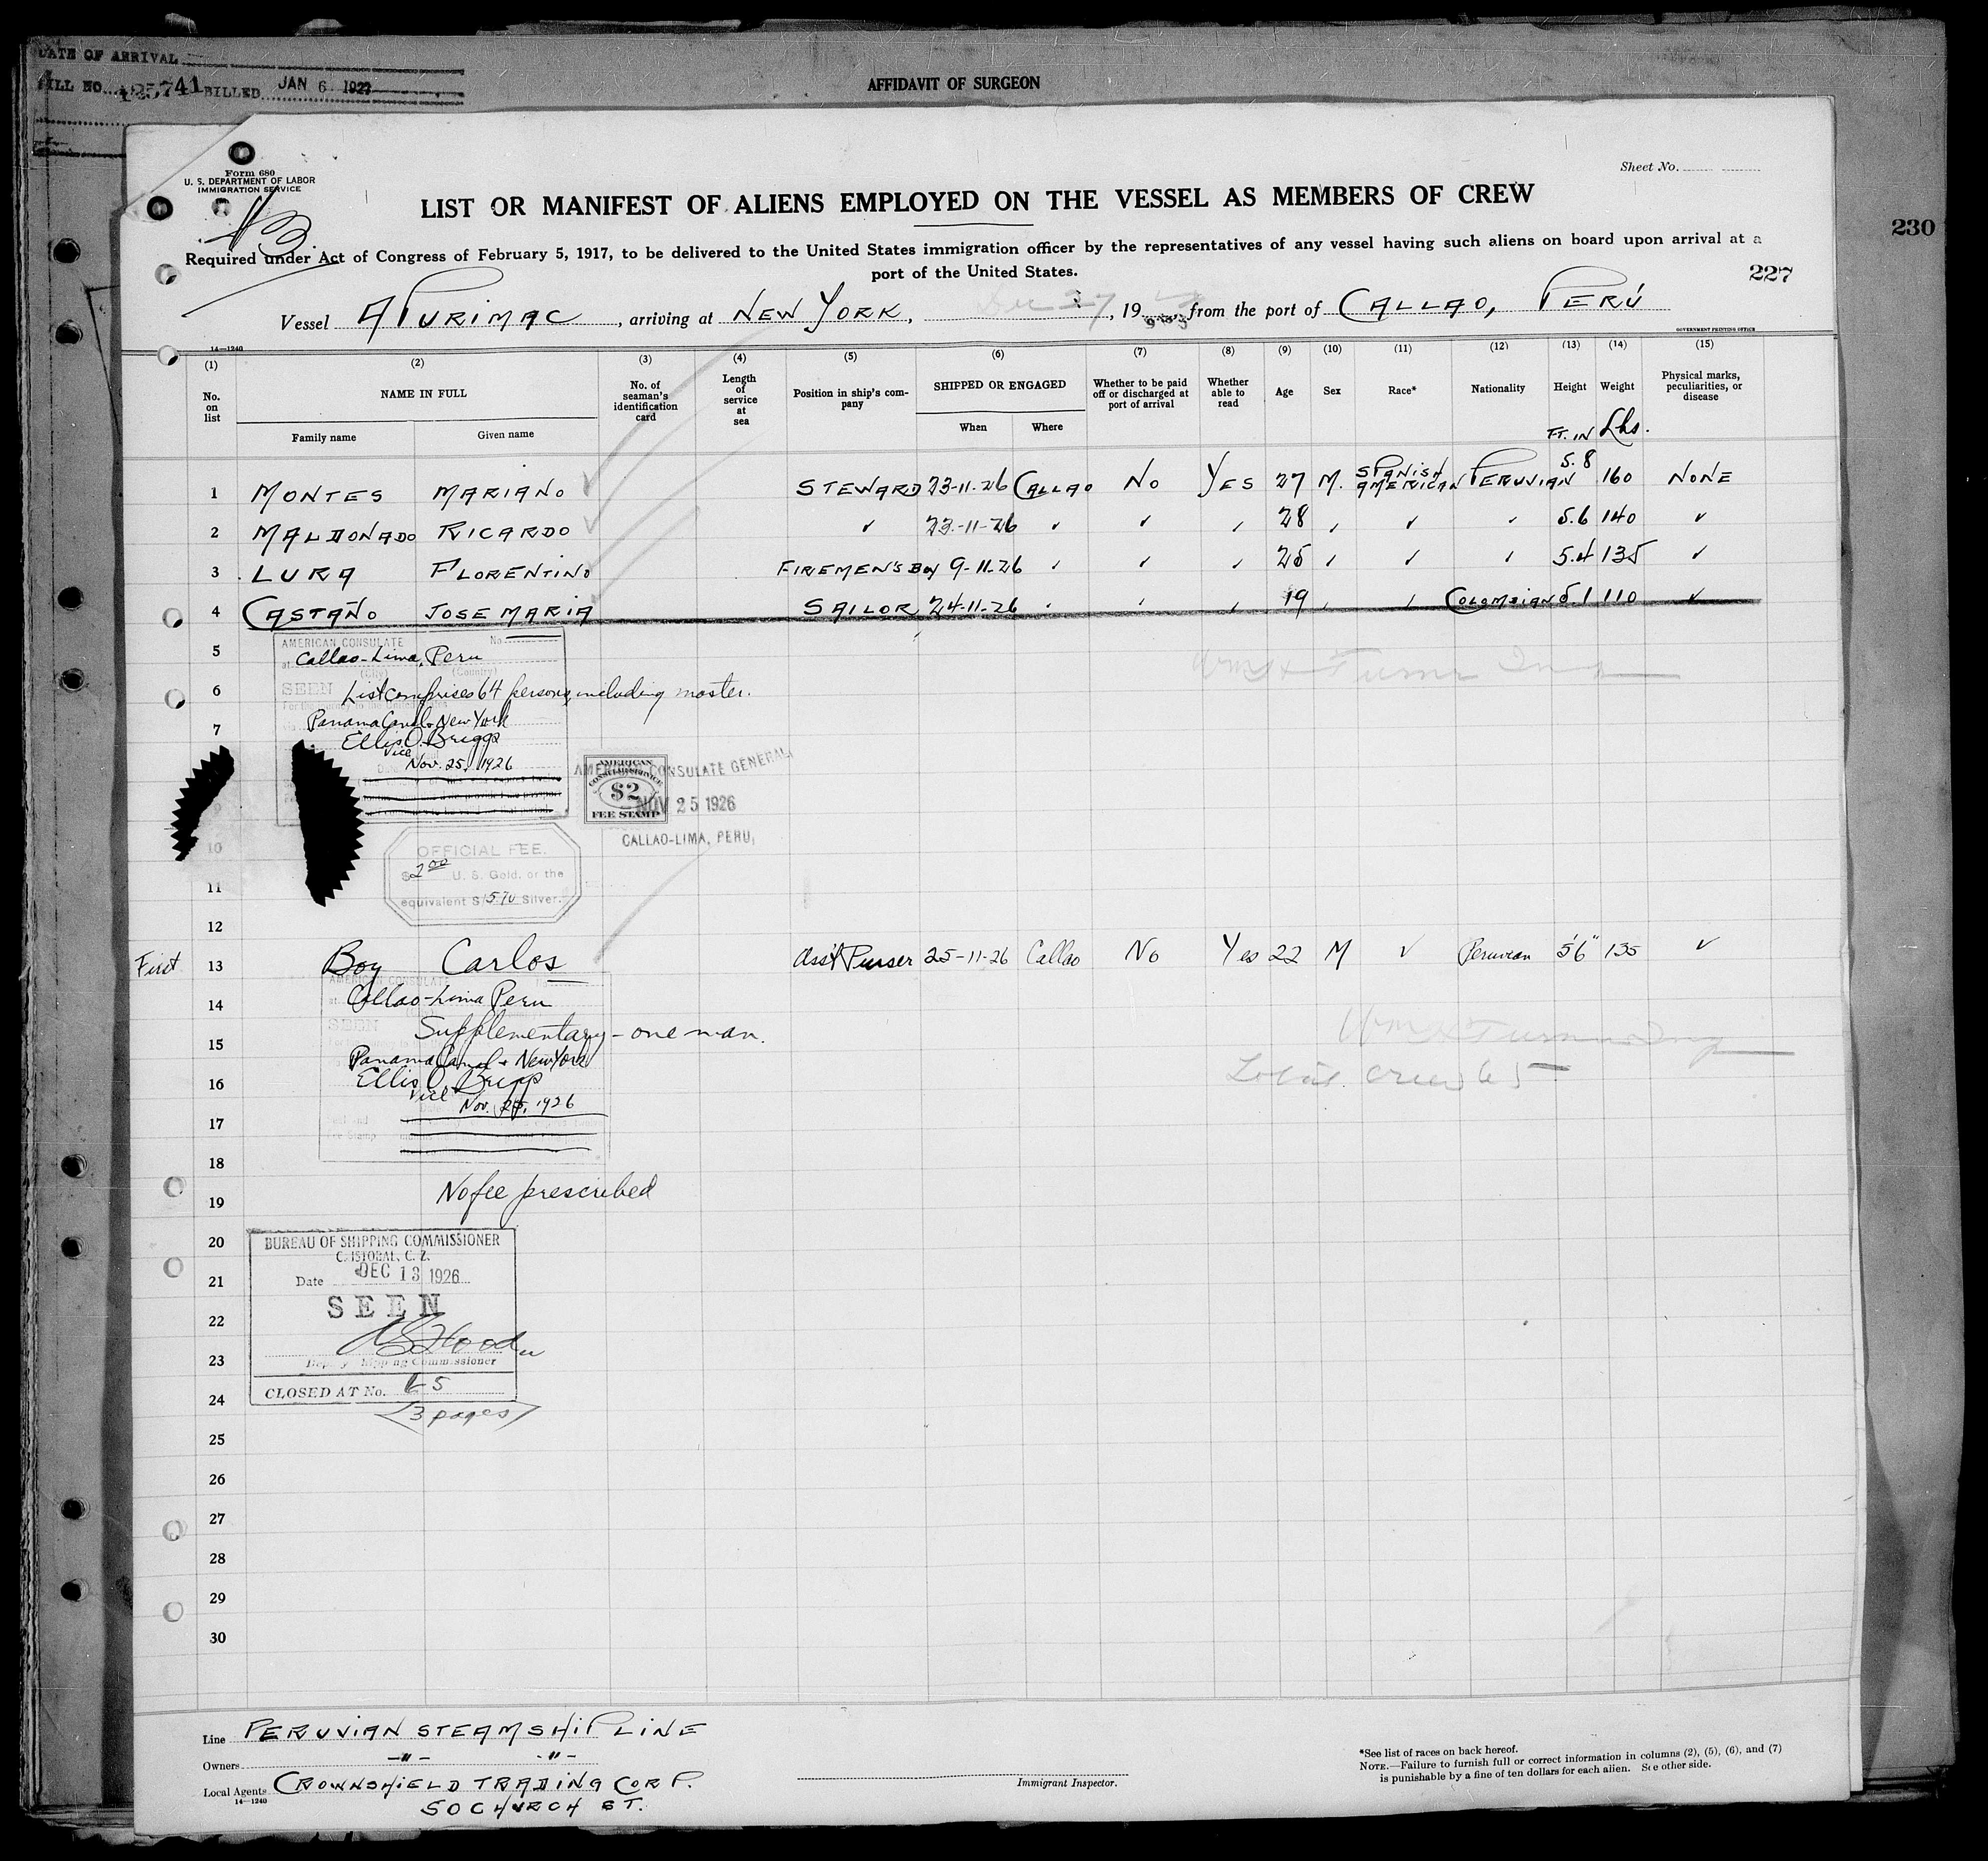 DATE OF ARRIVAL
BILL NO. 125741 BILLED JAN 6 1927
AFFIDAVIT OF SURGEON
230
Form 680
U. S. DEPARTMENT OF LABOR
IMMIGRATION SERVICE
Sheet No.
LIST OR MANIFEST OF ALIENS EMPLOYED ON THE VESSEL AS MEMBERS OF CREW
Required under Act of Congress of February 5, 1917, to be delivered to the United States immigration officer by the representatives of any vessel having such aliens on board upon arrival at a
port of the United States.
227
Vessel APURIMAC, arriving at NEW YORK, Dec 27, 19 from the port of CALLAO, PERÚ
14-1240
GOVERNMENT PRINTING OFFICE
(1) (2) (3) (4) (5) (6) (7) (8) (9) (10) (11) (12) (13) (14) (15)
No. on list
NAME IN FULL
Family name
Given name
No. of seaman's identification card
Length of service at sea
Position in ship's company
SHIPPED OR ENGAGED
When
Where
Whether to be paid off or discharged at port of arrival
Whether able to read
Age
Sex
Race*
Nationality
Height
Weight
Physical marks, peculiarities, or disease
FT. IN Lbs.
1 MONTES MARIANO ✓ STEWARD 23-11-26 CALLAO NO YES 27 M. SPANISH AMERICAN PERUVIAN 5.8 160 NONE
2 MALDONADO RICARDO ✓ ✓ 23-11-26 ✓ ✓ ✓ 28 ✓ ✓ ✓ 5.6 140 ✓
3 LURA FLORENTINO FIREMEN'S BOY 9-11-26 ✓ ✓ ✓ 25 ✓ ✓ ✓ 5.4 135 ✓
4 CASTAÑO JOSE MARIA SAILOR 24-11-26 ✓ ✓ ✓ 19 ✓ ✓ COLOMBIAN 5.1 110 ✓
5
AMERICAN CONSULATE No
at Callao-Lima, Peru
(City) (Country)
6
SEEN List comprises 64 persons, including master.
7
Panama Canal & New York
Ellis O. Briggs
Vice
Nov. 25, 1926
AMERICAN
CONSULAR SERVICE
$2
FEE STAMP
AMERICAN CONSULATE GENERAL,
NOV 25 1926
CALLAO-LIMA, PERU,
9
10
OFFICIAL FEE.
$2.00 U. S. Gold, or the
equivalent S/5.70 Silver.
11
12
First 13 Boy Carlos Ass't Purser 25-11-26 Callao No Yes 22 M ✓ Peruvian 5'6" 135 ✓
AMERICAN CONSULATE
14 Callao-Lima Peru
SEEN
15 Supplementary - one man.
Panama Canal & New York
16 Ellis O. Briggs
Vice
Nov. 25, 1926
Total crew 65
17
18
19 No fee prescribed
20
BUREAU OF SHIPPING COMMISSIONER
CRISTOBAL, C. Z.
21
Date DEC 13 1926
SEEN
22
23
Deputy Shipping Commissioner
24
CLOSED AT No. 65
3 pages
25
26
27
28
29
30
Line PERUVIAN STEAMSHIP LINE
Owners -"- -"-
Local Agents CROWNSHIELD TRADING CORP.
14-1240
50 CHURCH ST.
Immigrant Inspector.
*See list of races on back hereof.
NOTE.—Failure to furnish full or correct information in columns (2), (5), (6), and (7)
is punishable by a fine of ten dollars for each alien. See other side.